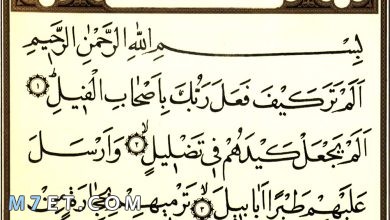 بِسْمِ اللهِ الرَّحْمٰنِ الرَّحِيمِ
اَلَمْ تَرَ كَيْفَ فَعَلَ رَبُّكَ بِاَصْحَابِ الْفِيلِ ١
اَلَمْ يَجْعَلْ كَيْدَهُمْ فِي تَضْلِيلٍ ٢ وَاَرْسَلَ
عَلَيْهِمْ طَيْرًا اَبَابِيلَ ٣ تَرْمِيهِمْ بِحِجَارَةٍ مِنْ
MZET.COM